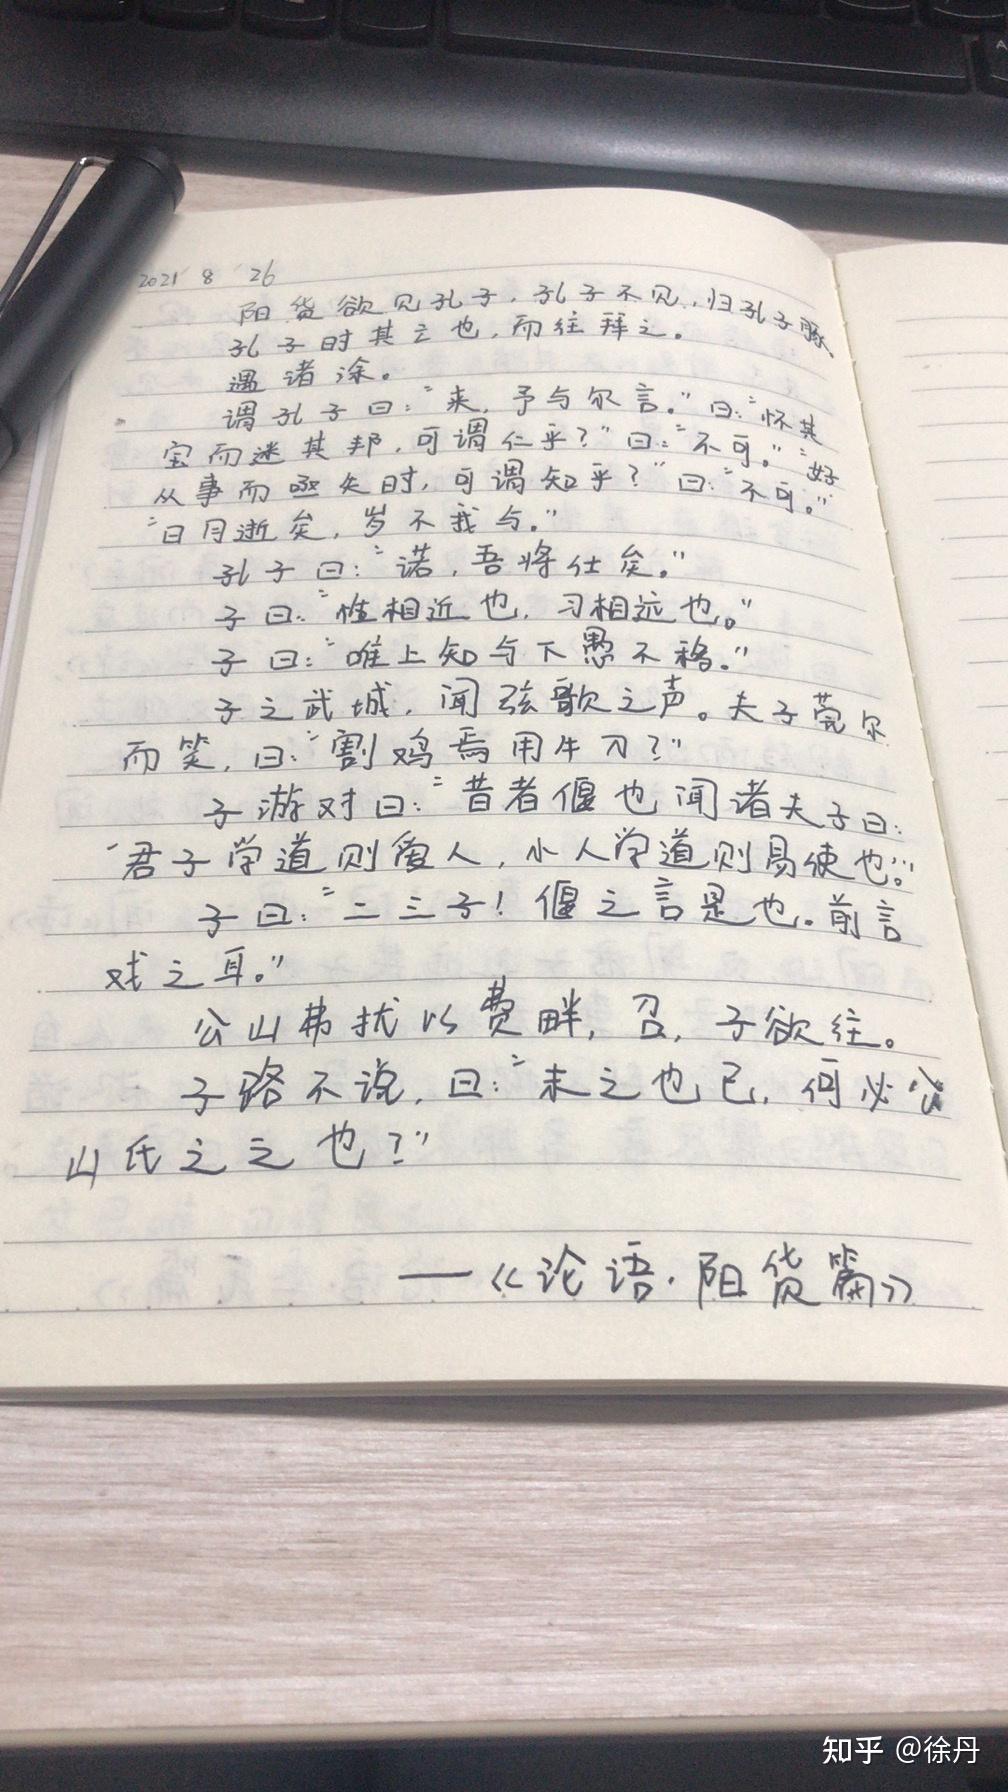 2021 8 26
阳货欲见孔子，孔子不见，归孔子豚、
孔子时其亡也，而往拜之。
遇诸涂。
谓孔子曰：“来，予与尔言。”曰：“怀其
宝而迷其邦，可谓仁乎？”曰：“不可。”“好
从事而亟失时，可谓知乎？”曰：“不可。”
“日月逝矣，岁不我与。”
孔子曰：“诺，吾将仕矣。”
子曰：“性相近也，习相远也。”
子曰：“唯上知与下愚不移。”
子之武城，闻弦歌之声。夫子莞尔
而笑，曰：“割鸡焉用牛刀？”
子游对曰：“昔者偃也闻诸夫子曰：
‘君子学道则爱人，小人学道则易使也。’”
子曰：“二三子！偃之言是也。前言
戏之耳。”
公山弗扰以费畔，召，子欲往。
子路不说，曰：“末之也已，何必公
山氏之之也？”
——《论语·阳货篇》
知乎 @徐丹